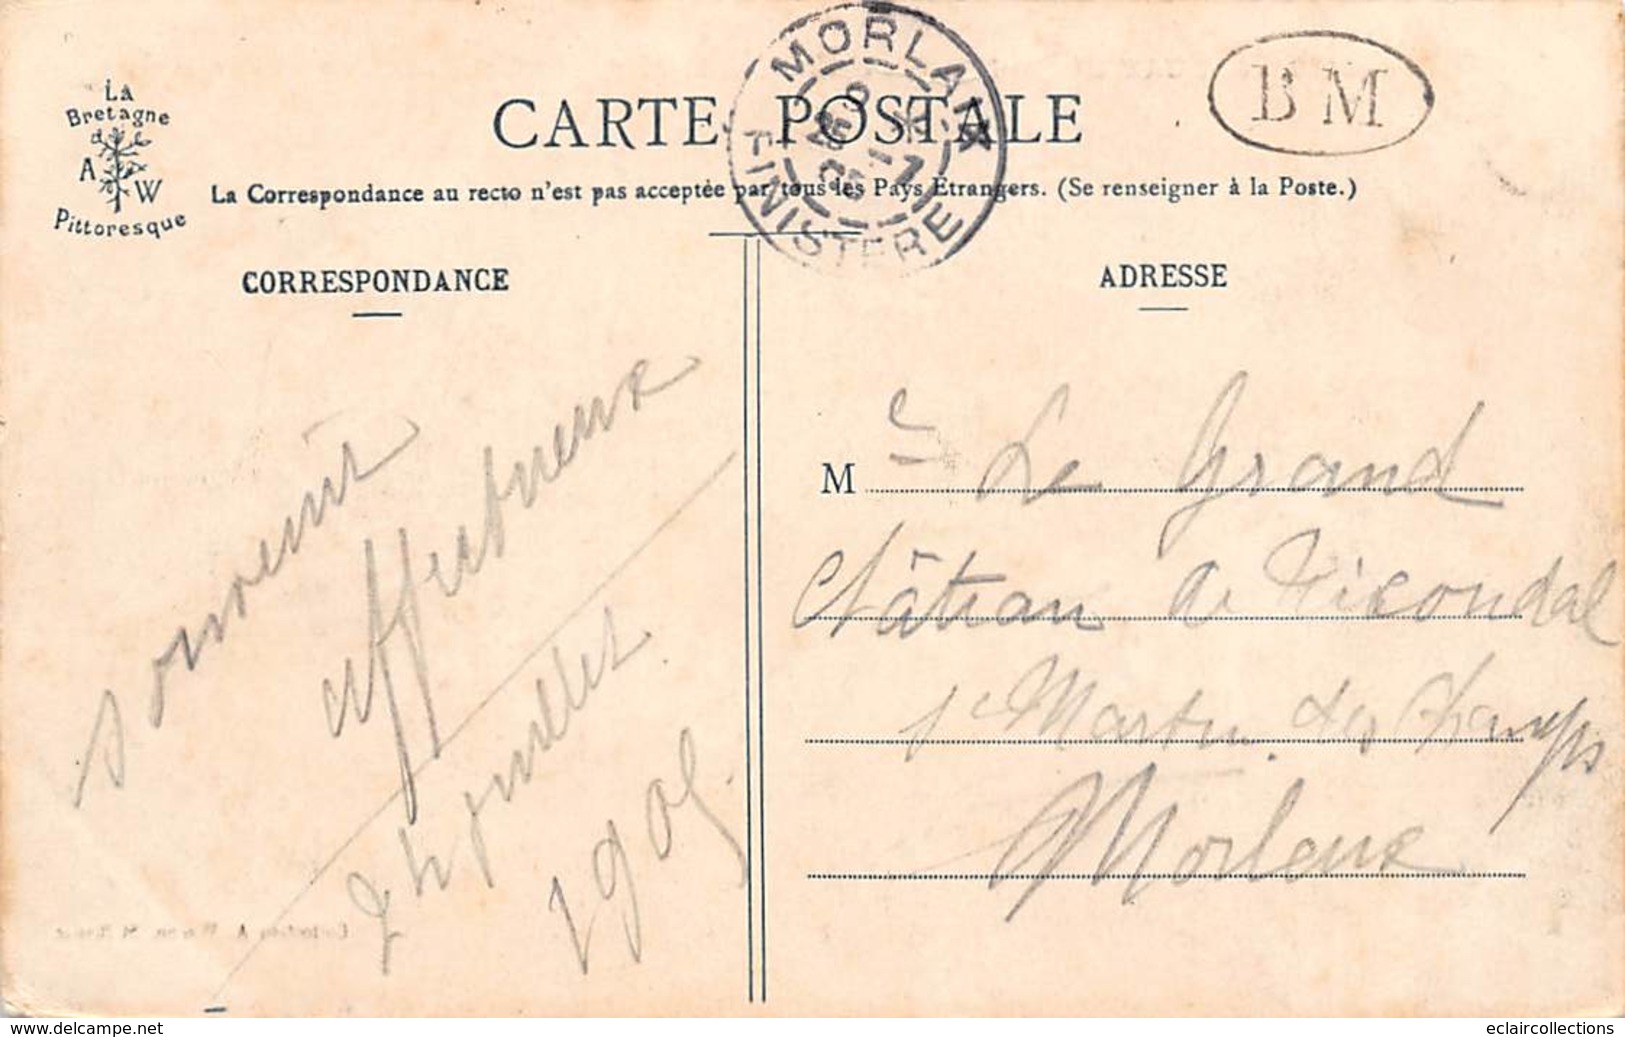 La
Bretagne
A W
Pittoresque
CARTE POSTALE
MORLAIX
FINISTERE
BM
La Correspondance au recto n'est pas acceptée par tous les Pays Etrangers. (Se renseigner à la Poste.)
CORRESPONDANCE
ADRESSE
souvenir
affectueux
24 juillet
1905
M e Le Grand
Château de
St Martin des Champs
Morlaix
www.delcampe.net
eclaircollections